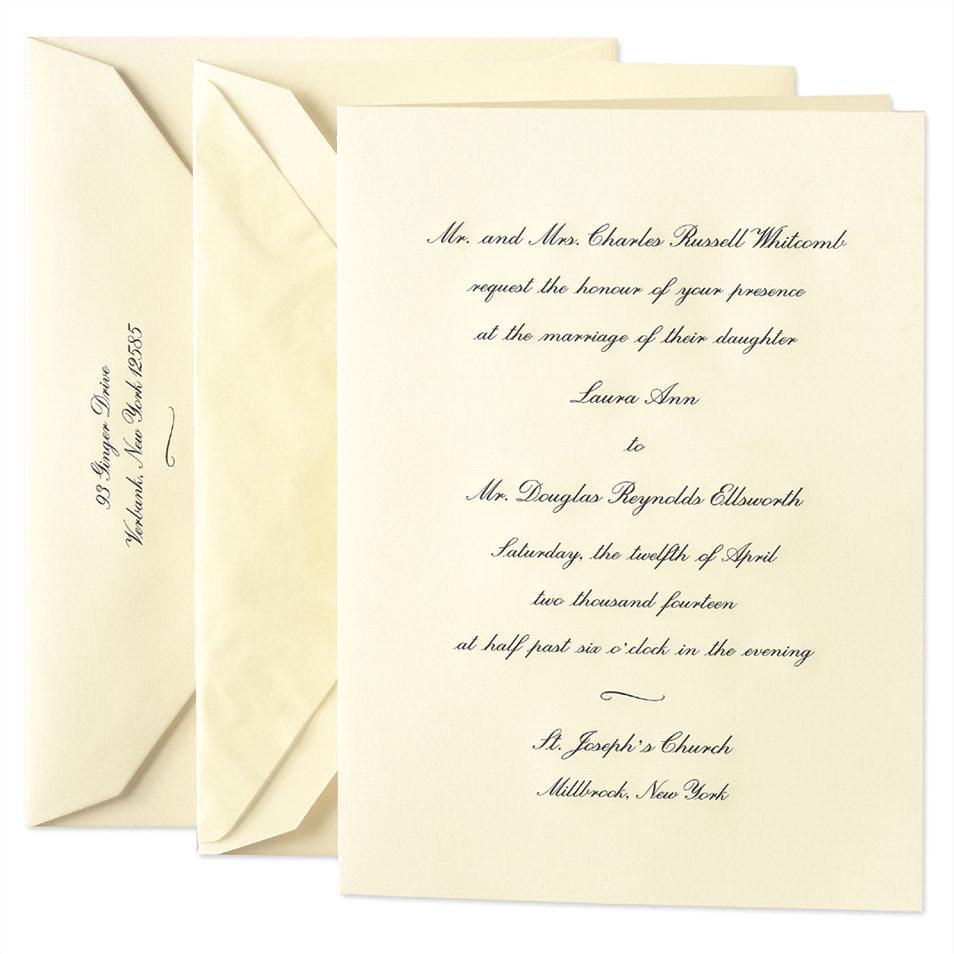 93 Ginger Drive
Verbank, New York 12585
Mr. and Mrs. Charles Russell Whitcomb
request the honour of your presence
at the marriage of their daughter
Laura Ann
to
Mr. Douglas Reynolds Ellsworth
Saturday, the twelfth of April
two thousand fourteen
at half past six o'clock in the evening
St. Joseph's Church
Millbrook, New York